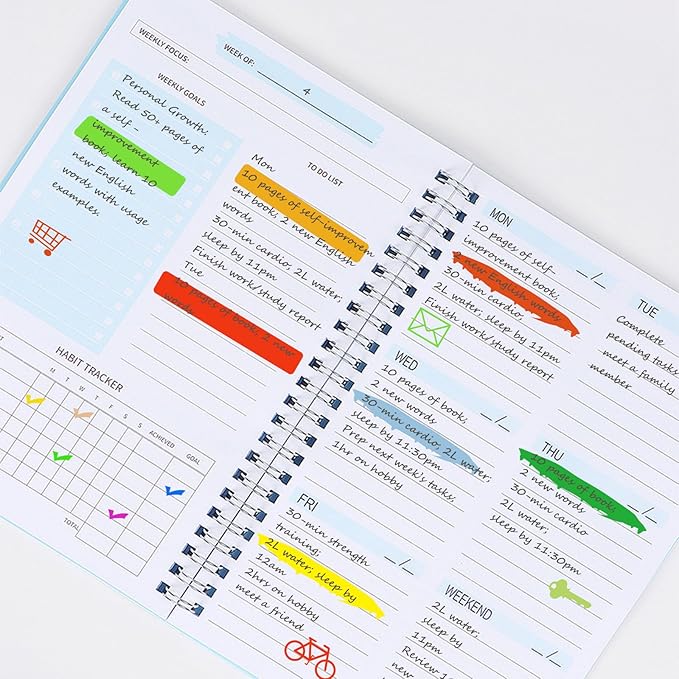 WEEKLY FOCUS:
WEEK OF: 4
WEEKLY GOALS
Personal Growth.
Read 50+ pages of
a self-
improvement
book, learn 10
new English
words with usage
examples.
TO DO LIST
Mon
10 pages of self-improvem
ent book, 2 new English
words
30-min cardio, 2L water,
sleep by 11pm
Finish work/study report
Tue
10 pages of book, 2 new
words
HABIT TRACKER
M T W T F S S ACHIEVED GOAL
TOTAL
MON
_/_
10 pages of self-
improvement book,
2 new English words
30-min cardio
2L water, sleep by 11pm
Finish work/study report
TUE
Complete
pending tasks
meet a family
member
WED
_/_
10 pages of book,
2 new words
30-min cardio, 2L water,
sleep by 11:30pm
Prep next week's tasks,
1hr on hobby
THU
_/_
10 pages of book,
2 new words
30-min cardio
2L water,
sleep by 11:30pm
FRI
_/_
30-min strength
training;
2L water; sleep by
12am
2hrs on hobby
meet a friend
WEEKEND
_/_
2L water,
sleep by
11pm
Review 1